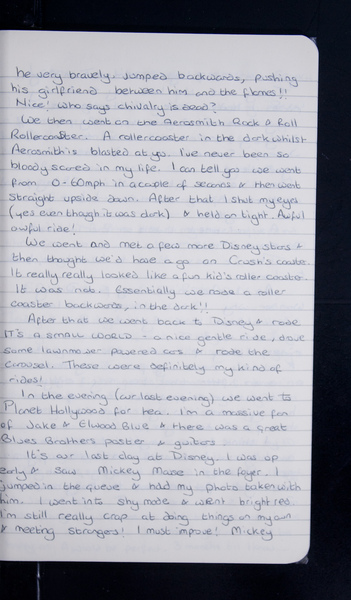 he very bravely jumped backwards, pushing
his girlfriend between him and the flames!!
Nice! Who says chivalry is dead?
We then went on the Aerosmith Rock & Roll
Rollercoaster. A rollercoaster in the dark whilst
Aerosmith is blasted at you. I've never been so
bloody scared in my life. I can tell you we went
from 0-60mph in a couple of seconds & then went
straight upside down. After that I shut my eyes
(yes even though it was dark) & held on tight. Awful
awful ride!
We went and met a few more Disney stars &
then thought we'd have a go on Crush's coaster.
It really really looked like a fun kid's roller coaster.
It was not. Essentially we rode a roller
coaster backwards, in the dark!!
After that we went back to Disney & rode
IT'S A SMALL WORLD - a nice gentle ride, drove
some lawnmower powered cars & rode the
carousel. These were definitely my kind of
rides!
In the evening (our last evening) we went to
Planet Hollywood for tea. I'm a massive fan
of Jake & Elwood Blue & there was a great
Blues Brothers poster & guitars
It's our last day at Disney. I was up
early & saw Mickey Mouse in the foyer. I
jumped in the queue & had my photo taken with
him. I went into shy mode & went bright red.
I'm still really crap at doing things on my own
& meeting strangers! I must improve! Mickey